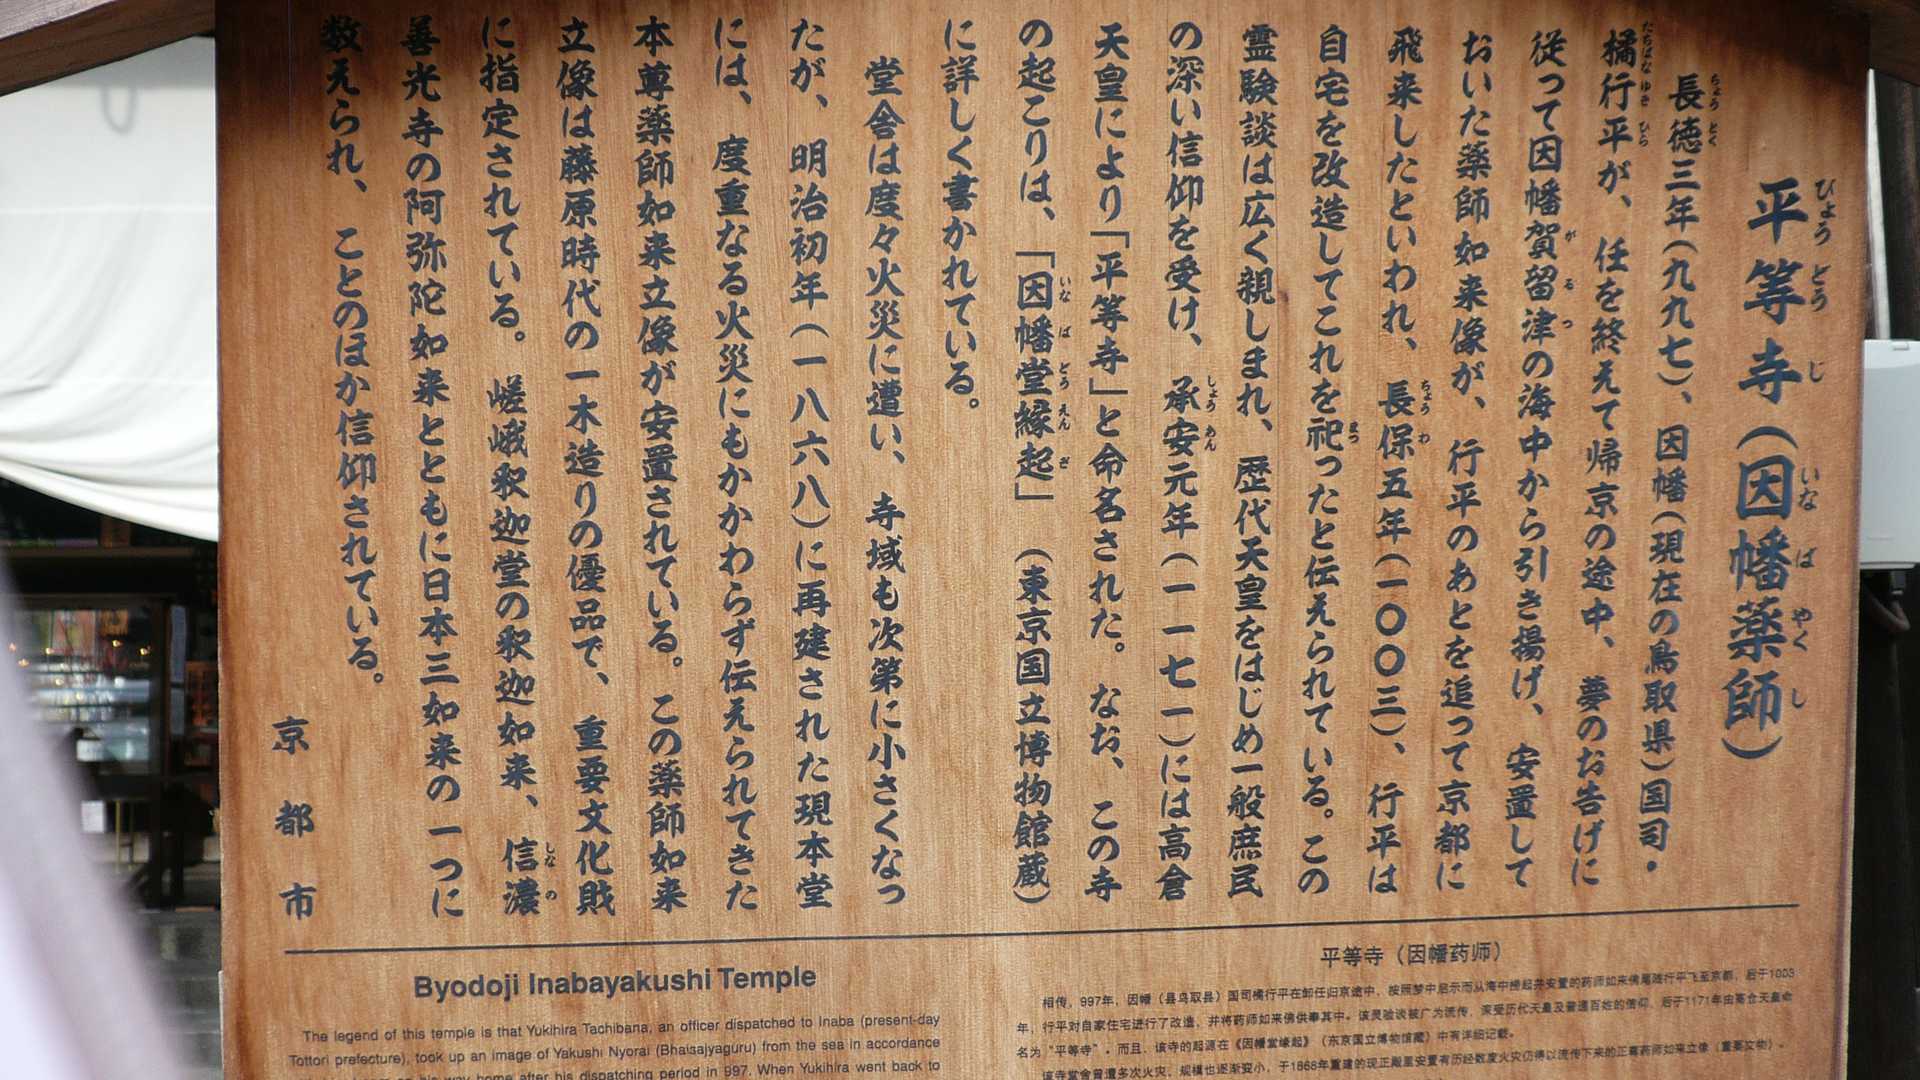 平等寺（因幡薬師）
長徳三年（九九七）、因幡（現在の鳥取県）国司・
橘行平が、任を終えて帰京の途中、夢のお告げに
従って因幡賀留津の海中から引き揚げ、安置して
おいた薬師如来像が、行平のあとを追って京都に
飛来したといわれ、長保五年（一〇〇三）、行平は
自宅を改造してこれを祀ったと伝えられている。この
霊験談は広く親しまれ、歴代天皇をはじめ一般庶民
の深い信仰を受け、承安元年（一一七一）には高倉
天皇により「平等寺」と命名された。なお、この寺
の起こりは、「因幡堂縁起」（東京国立博物館蔵）
に詳しく書かれている。
堂舎は度々火災に遭い、寺域も次第に小さくなっ
たが、明治初年（一八六八）に再建された現本堂
には、度重なる火災にもかかわらず伝えられてきた
本尊薬師如来立像が安置されている。この薬師如来
立像は藤原時代の一木造りの優品で、重要文化財
に指定されている。嵯峨釈迦堂の釈迦如来、信濃
善光寺の阿弥陀如来とともに日本三如来の一つに
数えられ、ことのほか信仰されている。
京都市
Byodoji Inabayakushi Temple
The legend of this temple is that Yukihira Tachibana, an officer dispatched to Inaba (present-day
Tottori prefecture), took up an image of Yakushi Nyorai (Bhaisajyaguru) from the sea in accordance
on his way home after his dispatching period in 997. When Yukihira went back to
平等寺（因幡药师）
相传，997年，因幡（县鸟取县）国司橘行平在卸任归京途中，按照梦中启示而从海中捞起并安置的药师如来佛尾随行平飞至京都，后于1003
年，行平对自家住宅进行了改造，并将药师如来佛供奉其中。该灵验谈被广为流传，深受历代天皇及普通百姓的信仰，后于1171年由高仓天皇命
名为“平等寺”。而且，该寺的起源在《因幡堂缘起》（东京国立博物馆藏）中有详细记载。
该寺堂舍曾遭多次火灾，规模也逐渐变小，于1868年重建的现正殿里安置有历经数度火灾仍得以流传下来的正尊药师如来立像（重要文物）。